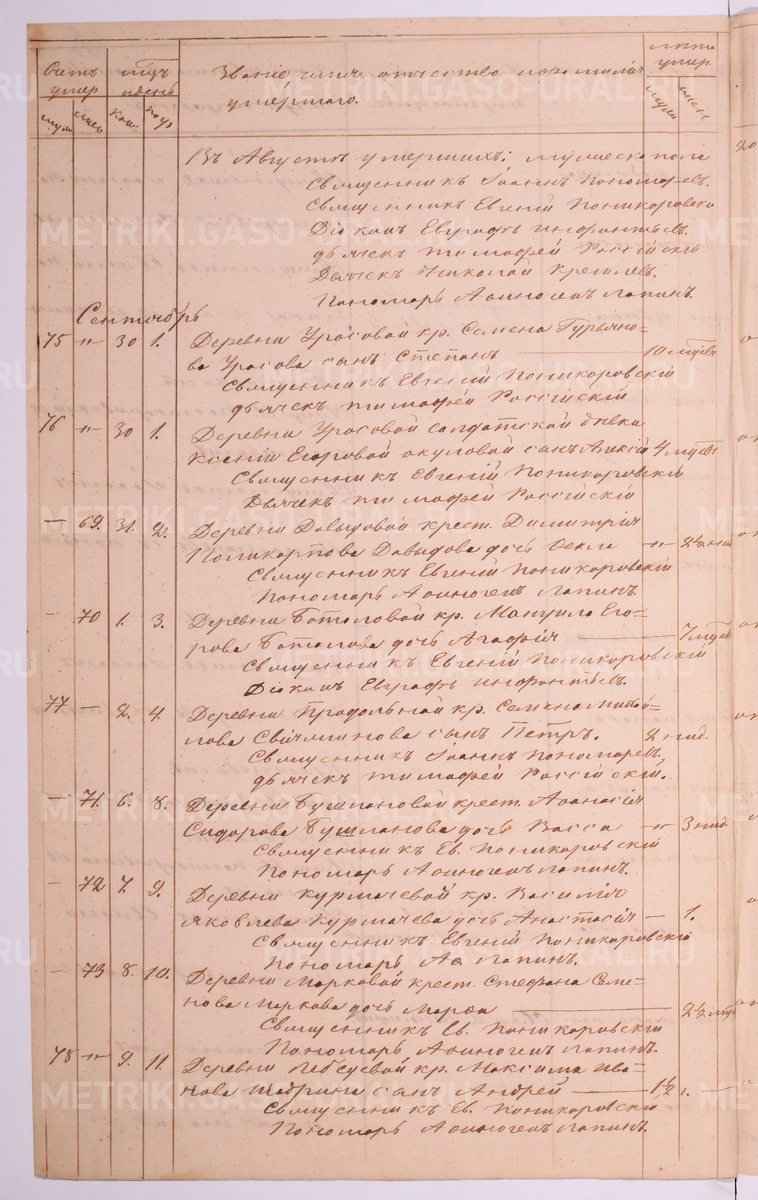 Счетъ умер. Мсцъ и день Званіе имя отчество и фамилія Лета умер.
муж жен кон. погр. умершаго. муж жен
Въ Августѣ умершихъ: мужеска пола
Священникъ Іоаннъ Пономаревъ.
Священникъ Евгеній Поникоровскій
Діаконъ Евграфъ Инфантьевъ.
дьячекъ Тимофей Россійскій
Дьячекъ Николай
Пономарь Афиногенъ Лапинъ.
Сентябрь
75 " 30 1. Деревни Уросовой кр. Семена Гурьяно-
ва Уросова сынъ Степанъ 10 мцевъ
Священникъ Евгеній Поникоровскій
дьячекъ Тимофей Россійскій
76 " 30 1. Деревни Уросовой салдатской дѣвки
Ксеніи Егоровой Окуловой сынъ Алексій 4 мцевъ
Священникъ Евгеній Поникоровскій
Дьячекъ Тимофей Россійскій
— 69. 31. 2. Деревни Давыдовой крест. Димитрія
Поликарпова Давидова дочь Фекла " 2½ нед
Священникъ Евгеній Поникоровскій
Пономарь Афиногенъ Лапинъ.
— 70 1. 3. Деревни Боталовой кр. Мануила Его-
рова Боталова дочь Агафія — 7 мцевъ
Священникъ Евгеній Поникоровскій
Діаконъ Евграфъ Инфантьевъ.
77 — 2. 4. Деревни Продольной кр. Семена Михай-
лова сынъ Петръ. 2 нед.
Священникъ Іоаннъ Пономаревъ.
дьячекъ Тимофей Россійскій.
— 71. 6. 8. Деревни Бушлановой крест. Афанасія
Сидорова Бушланова дочь Васса — " 3 нед.
Священникъ Ев. Поникоровскій
Пономарь Афиногенъ Лапинъ.
— 72 7. 9. Деревни Курмачевой кр. Василія
Яковлева Курмачева дочь Анастасія — 1.
Священникъ Евгеній Поникоровскій
Пономарь Аф. Лапинъ.
— 73 8. 10. Деревни Марковой крест. Стефана Семе-
нова Маркова дочь Марфа — 2½ мцев
Священникъ Ев. Поникоровскій
Пономарь Афиногенъ Лапинъ.
78 " 9. 11. Деревни кр. Максима Ива-
нова Шабрина сынъ Андрей — 1½ г. —
Священникъ Ев. Поникоровскій
Пономарь Афиногенъ Лапинъ.
METRIKI.GASO-URAL.RU